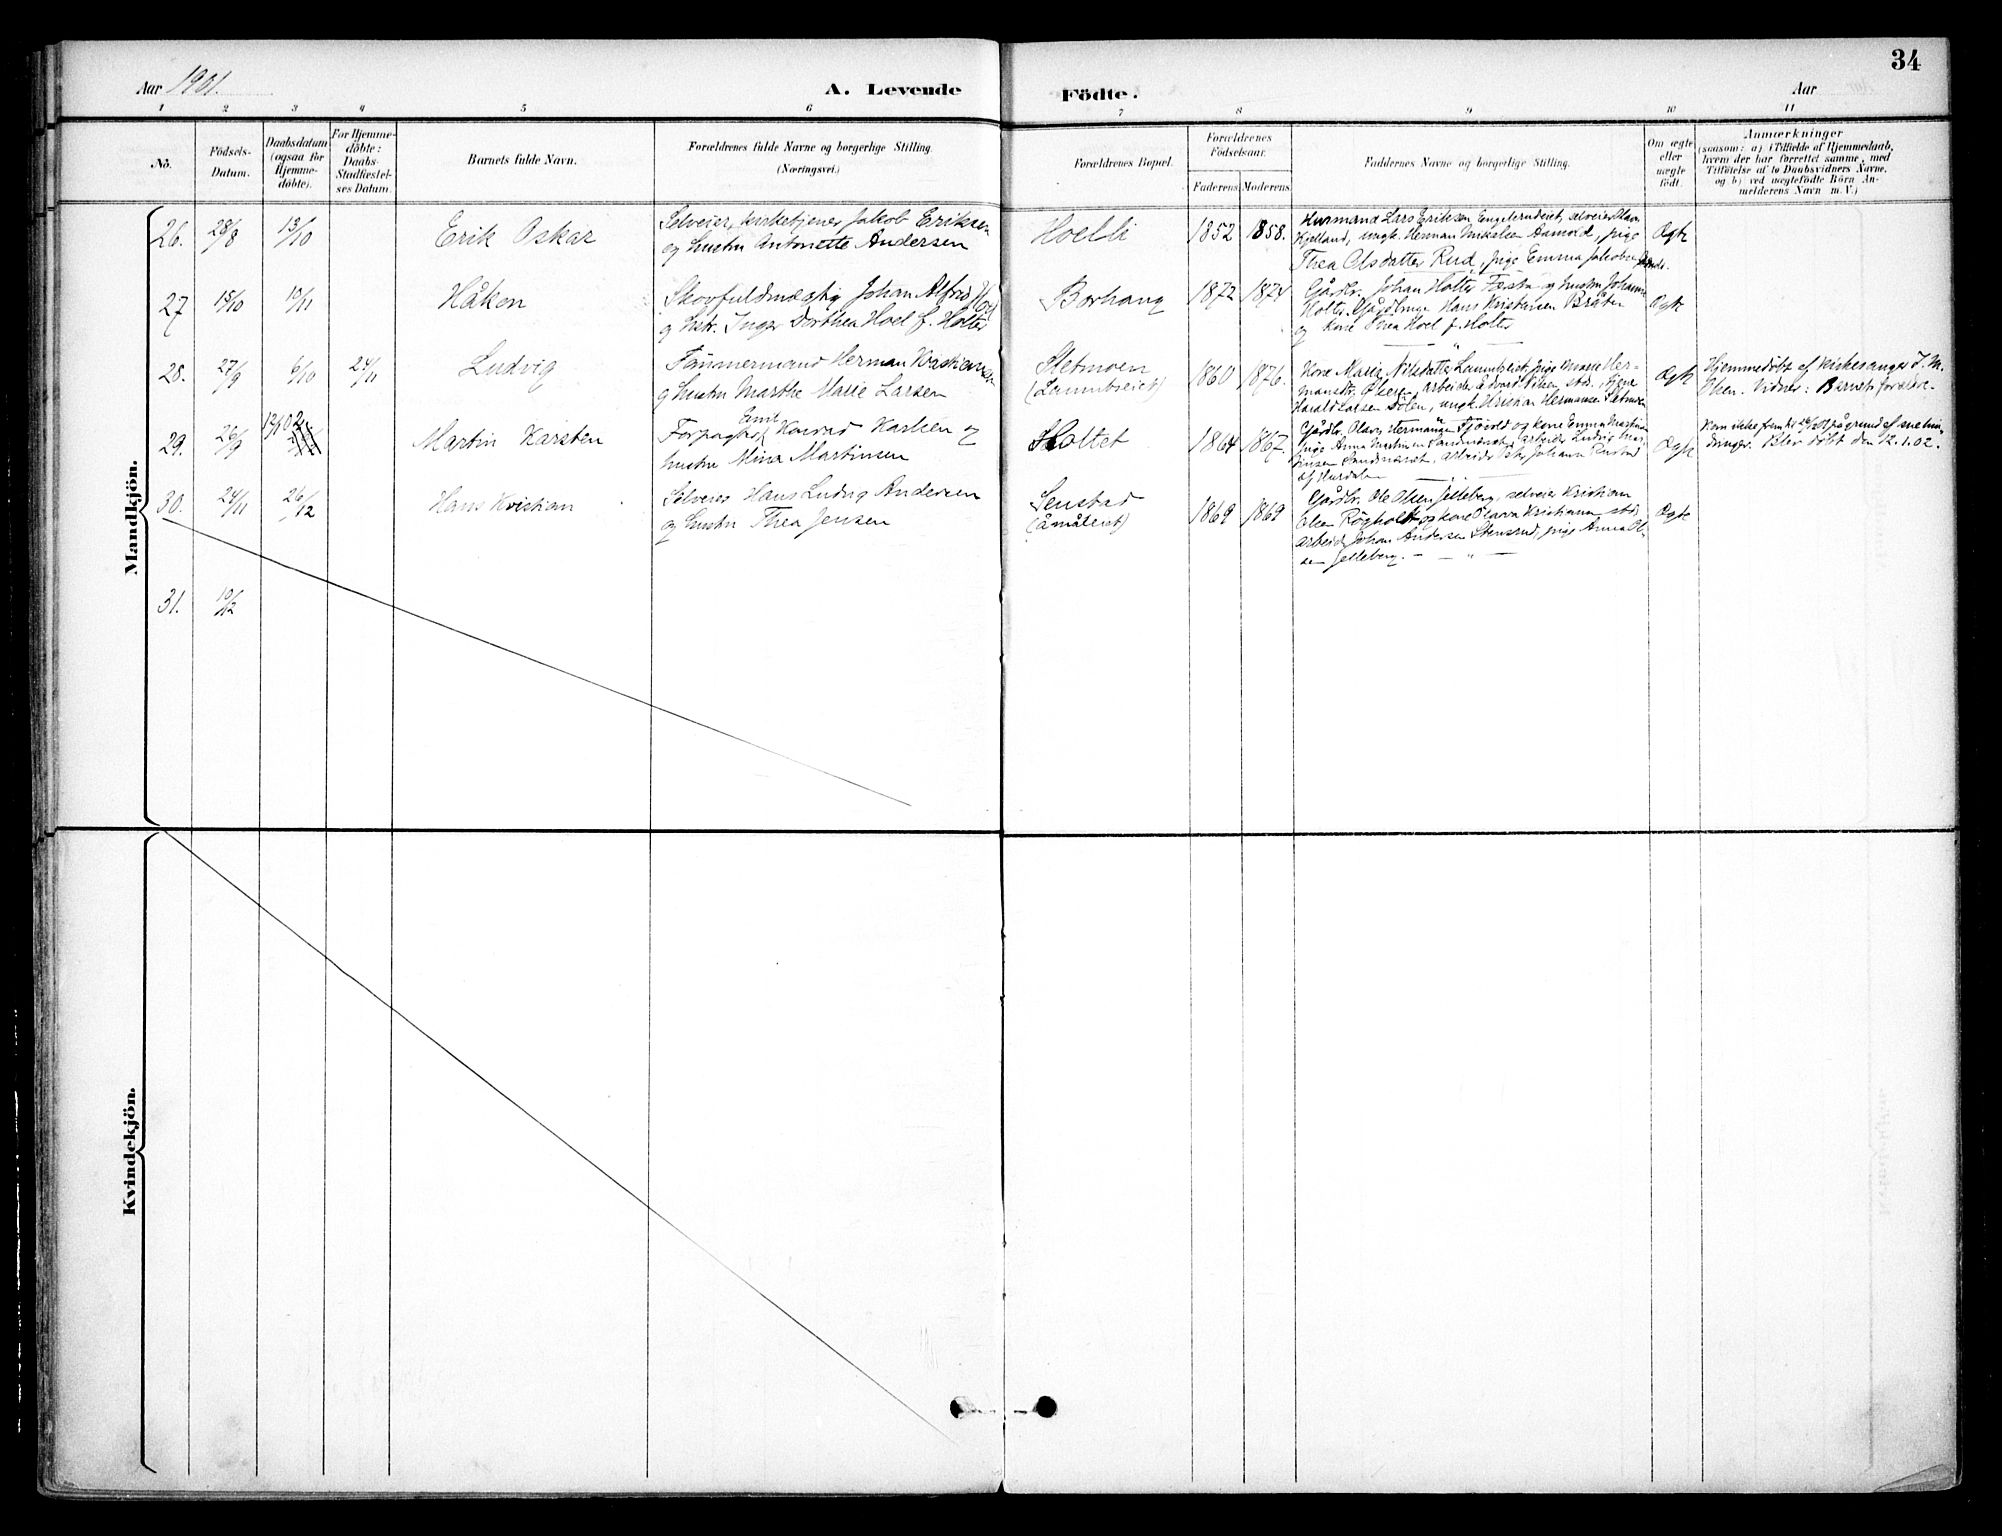 34
Aar 1901.
A. Levende Födte.
Aar
1 2 3 4 5 6 7 8 9 10 11
No.
Födsels-
Datum.
Daabsdatum
(ogsaa for
Hjemme-
döbte).
For Hjemme-
döbte:
Daabs-
Stadfæstel-
ses Datum.
Barnets fulde Navn.
Forældrenes fulde Navne og borgerlige Stilling.
(Næringsvei.)
Forældrenes Bopæl.
Forældrenes
Födselsaar.
Faderens. Moderens.
Faddernes Navne og borgerlige Stilling.
Om ægte
eller
uægte
födt.
Anmærkninger
(saasom: a) i Tilfælde af Hjemmedaab,
hvem der har forrettet samme, med
Tilföielse af to Daabsvidners Navne,
og b) ved uægtefödte Börn An-
melderens Navn m. V.)
Mandkjön.
26. 28/8 13/10
Erik Oskar
Selveier, kirketjener Jakob Eriksen
og hustru Antonette Andersen
Hoelli
1852 1858.
Husmand Lars Eriksen Engelsrudeiet, selveier Olaus
Kjelland, ungk. Herman Mikelsen Aamord, pige
Thea Olsdatter Rud, pige Emma Jakobsen
Ægte
27 15/10 10/11
Håken
Skovfuldmægtig Johan Alfred Hoel
og hstr. Inga Dorthea Hoel f. Holter
Borhaug
1872 1874
Gårdbr. Johan Holter Festa og hustru Johanne
Holter. Gårdbruger Hans Kristensen Bråten
og kone Thea Hoel f. Holter
Ægte
28. 27/9 6/10 24/11
Ludvig
Tømmermand Herman Kristiansen
og hustru Marthe Marie Larsen
Sletmoen
(Laumbseiet)
1860 1876.
Kone Marie Nilsdatter Laumbseiet, pige Marie Her-
manstr. Øberg, arbeider Edvard Nilsen stds.,
Harald Larsen Dølen, ungk. Kristian Hermansen Sletmoen
Ægte
Hjemmedøbt af kirkesanger J. M.
Olsen. Vidner: Barnets forældre.
29. 26/9 13/1 02
Martin Karsten
Forpagter Emil Konrad Karlsen og
hustru Mina Martinsen
Holtet
1864 1867.
Gårdbr. Olaus Hermansen og kone Emma
pige Anna Martinsen Sandnæseiet, arbeider Ludvig Mar-
tinsen Sandnæseiet, arbeider Peter Johansen Rustad
af Hurdalen
Ægte
Kom ikke frem til på grund af melin-
dinger. Blev døbt den 12.1.02.
30. 24/11 26/12
Hans Kristian
Selveier Hans Ludvig Andersen
og hustru Thea Jensen
Senstad
(Åmåleiet)
1869 1869
Gårdbr. Ole Olsen Jelleberg, selveier Kristian
Olsen Røgholt og kone Olava Kristiansen stds.
arbeider Johan Andersen Stensrud, pige Anna Ol-
sen Jelleberg.
Ægte
31. 10/12
Kvindekjön.